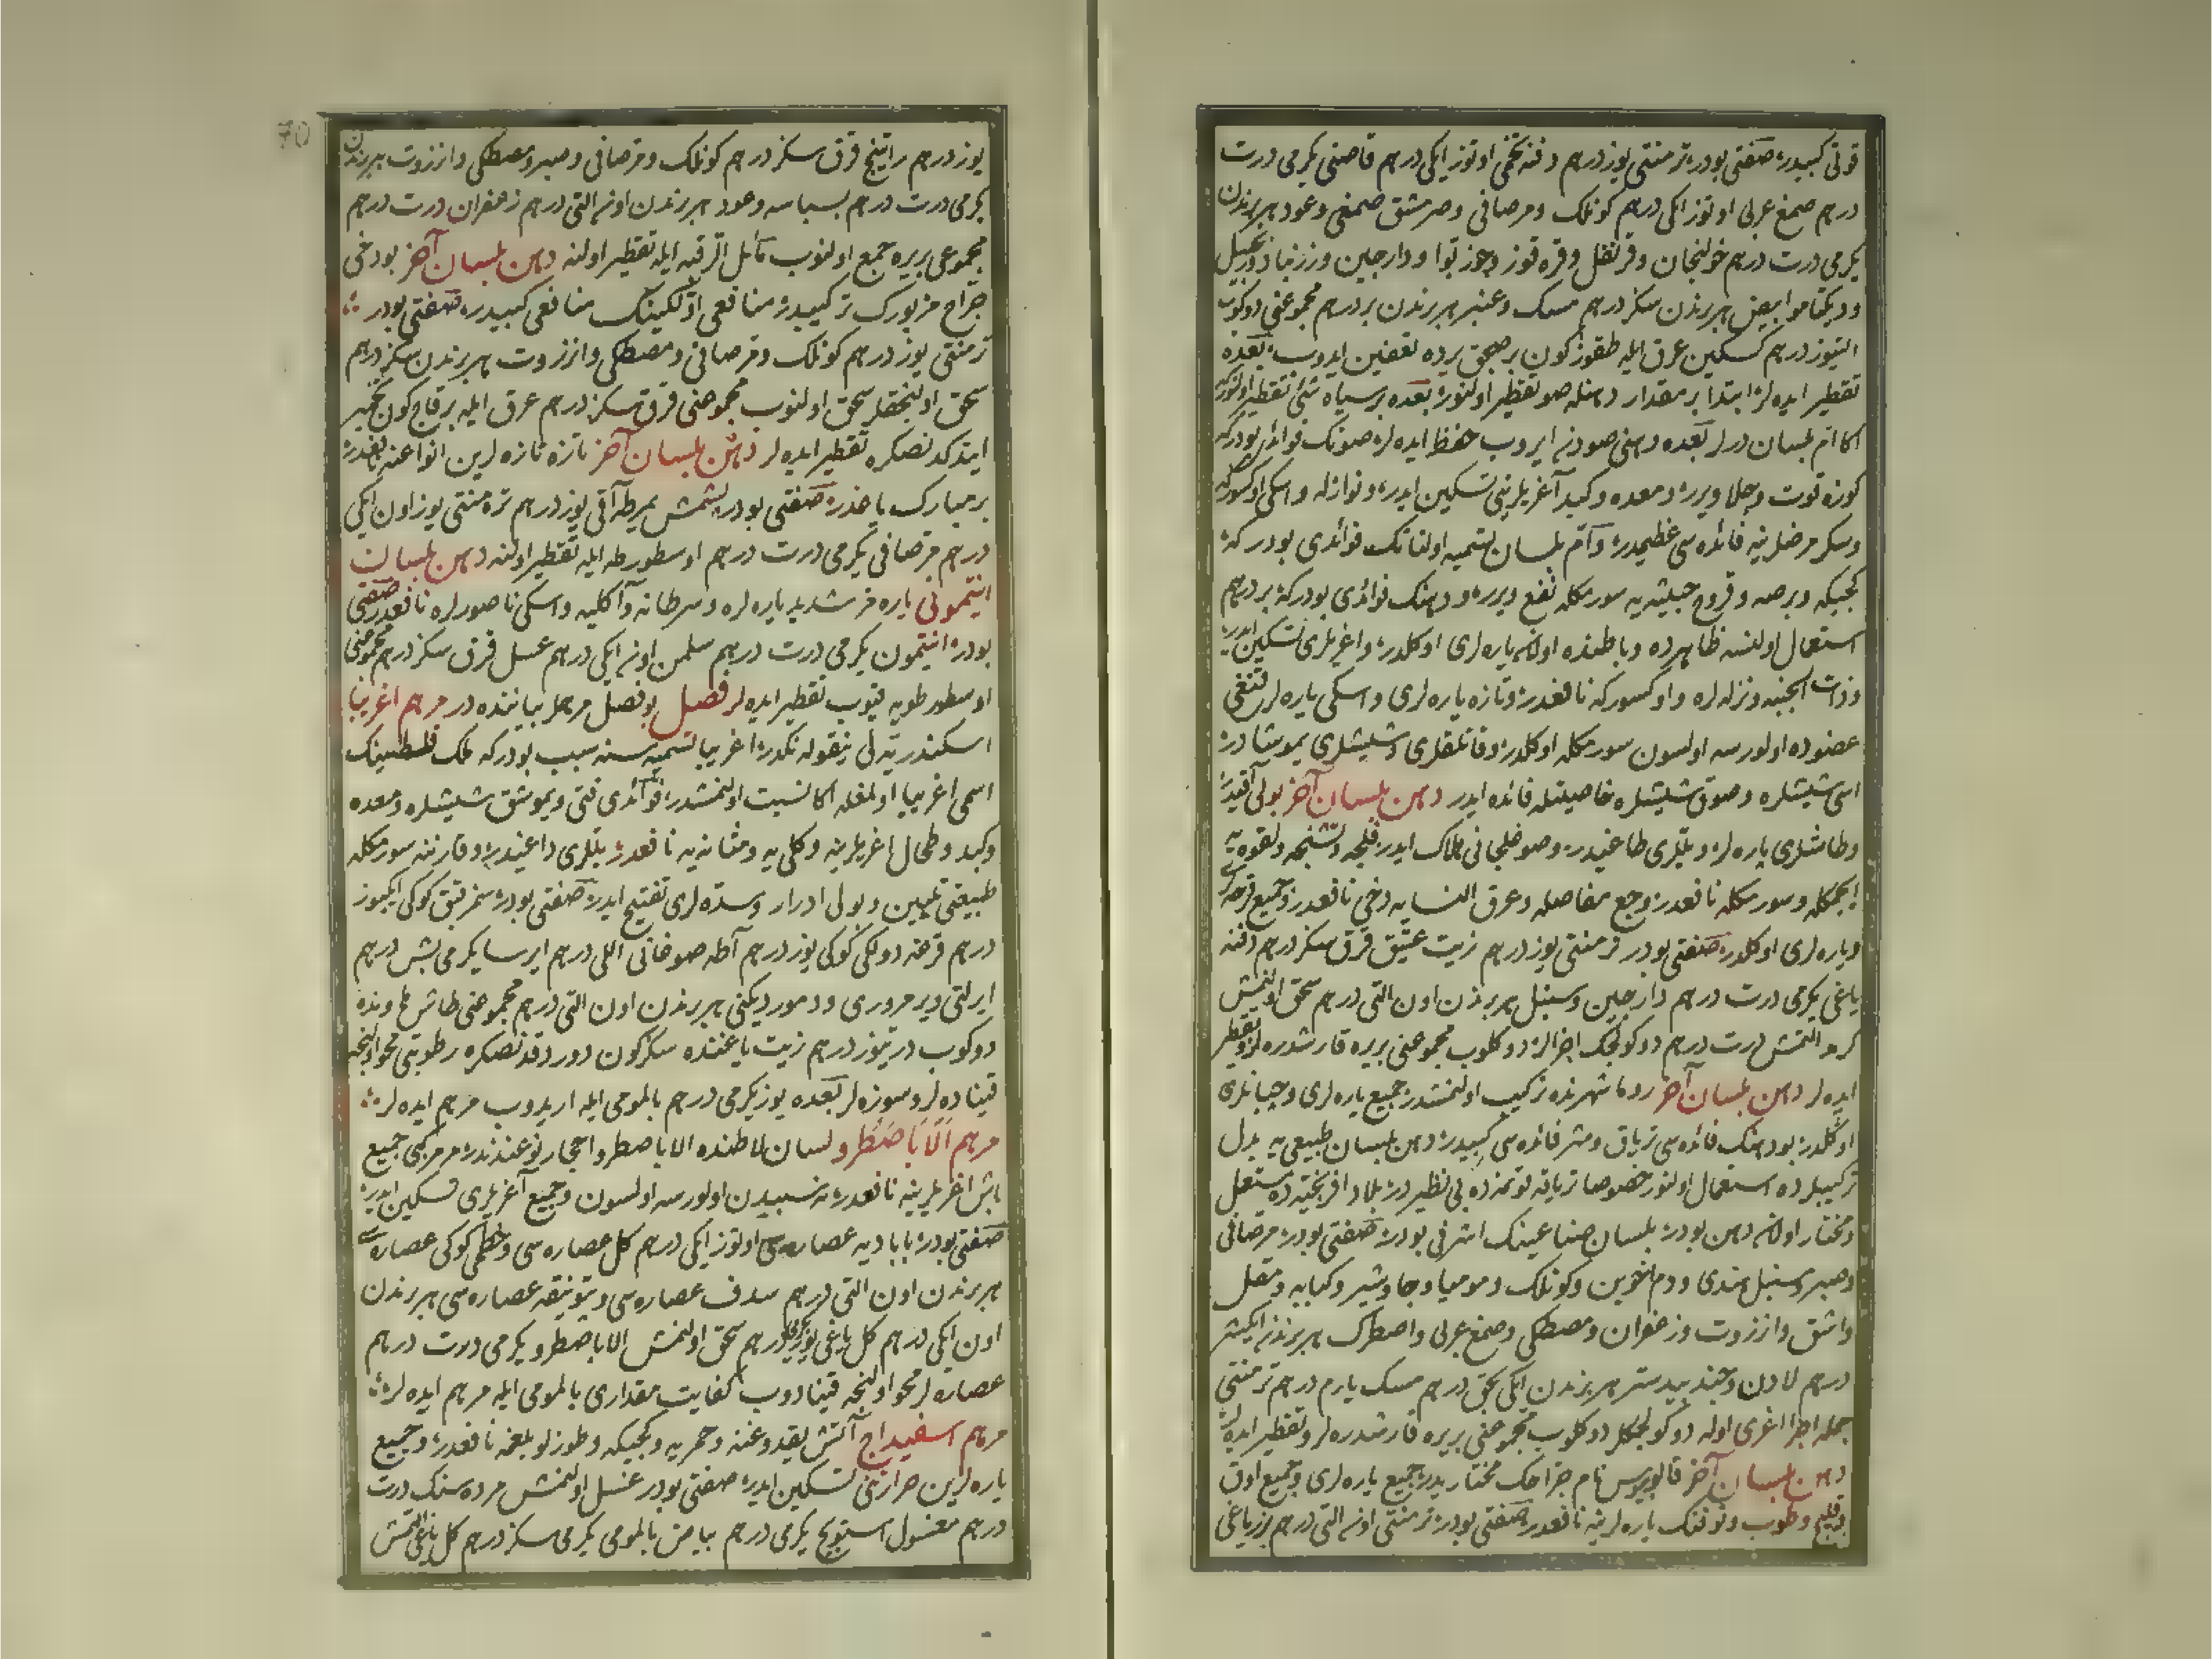 قوتى كبيدر صفتى بودر ترمنتى يوز درهم دفنه تخمى اوتوز ايكى درهم قاصنى يكرمى درت
درهم صمغ عربى اوتوز ايكى درهم كونلك ومرصافى وصرمشق صمغى وعود هر برندن
يكرمى درت درهم خولنجان وقرنفل وقره قوز وجوز بوا ودارچين وزرنباد وزنجبيل
وديكتامو ابيض هر برندن سكز درهم مسك وعنبر هر برندن بر درهم مجموعنى دوكوب
التيوز درهم كسكين عرق ايله طقوز كون بر صيجق يرده تعفين ايدوب بعده
تقطير ايده لر ابتدا بر مقدار دهنله صو تقطير اولنور بعده بر سياه شئ تقطير اولنور كه
اكا ام بلسان ديرلر بعده دهنى صودن ايروب حفظ ايده لر صونك فوائدى بودر كه
كوزه قوت وجلا ويرر ومعده وكبد آغريلرينى تسكين ايدر ونوازله واسكى اوكسوركه
وسكر مرضلرينه فائده سى عظيمدر وام بلسان تسميه اولنانك فوائدى بودر كه
كجيكه وبرصه وقروح خبيثه يه سورمكله نفع ويرر ودهنك فوائدى بودر كه بر درهم
استعمال اولنسه ظاهرده وباطنده اولان ياره لرى اوكلدر واغريلرى تسكين ايدر
وذات الجنبه ونزله لره واوكسوركه نافعدر وتازه ياره لرى واسكى ياره لر قنغى
عضوده اولورسه اولسون سورمكله اوكلدر وقاتلقلرى وشيشلرى يموشادر
اسى شيشلره وصوق شيشلره خاصيتله فائده ايدر دهن بلسان آخر بولى آقيدر
وطاشلرى پاره لر ويللرى طاغيدر وصوغلجانى هلاك ايدر فلجه وتشنجه ولقوه يه
ايچمكله وسورمكله نافعدر وجع مفاصله وعرق النسايه دخى نافعدر وجميع قرحه لرى
وياره لرى اوكلدر صفتى بودر ترمنتى يوز درهم زيت عتيق قرق سكز درهم دفنه
ياغى يكرمى درت درهم دارچين وسنبل هر برندن اون التى درهم سحق اولنمش
كرمد التمش درت درهم دوكولجك اجزالر دوكلوب مجموعنى بريره قارشدره لر وتقطير
ايده لر دهن بلسان آخر روما شهرنده تركيب اولنمشدر جميع ياره لرى وچبانلرى
اوكلدر بودهنك فائده سى ترياق ومثر فائده سى كبيدر دهن بلسان طبيعى يه بدل
تركيبلرده استعمال اولنور خصوصا ترياقه قوتمزده بى نظيردر بلاد افرنجيه ده مستعمل
ومختار اولان دهن بودر بلسان صناعينك اشرفى بودر صفتى بودر مرصافى
وصبر وسنبل هندى ودم اخوين وكونلك وموميا وجاوشير وكبابه ومقل
واشق وانزروت وزعفران ومصطكى وصمغ عربى واصطرك هر برندن ايكيشر
درهم لادن وجند بيدستر هر برندن ايكى بچق درهم مسك يارم درهم ترمنتى
جمله اجزا اغرى اوله دوكولجكلر دوكلوب مجموعنى بريره قارشدره لر وتقطير ايده لر
دهن بلسان آخر قالوبيوس نام جراحك مختاريدر جميع ياره لرى وجميع اوق
وقليج وطوب وتوفنك ياره لرينه نافعدر صفتى بودر ترمنتى اون التى درهم بزر ياغى
70
يوز درهم راتينج قرق سكز درهم كونلك ومرصافى وصبر ومصطكى وانزروت هر برندن
يكرمى درت درهم بسباسه وعود هر برندن اون التى درهم زعفران درت درهم
مجموعى بريره جمع اولنوب مائل الرقبه ايله تقطير اولنه دهن بلسان آخر بودخى
جراح مزبورك تركيبيدر منافعى اولكينك منافعى كبيدر صفتى بودر
ترمنتى يوز درهم كونلك ومرصافى ومصطكى وانزروت هر برندن سكز درهم
سحق اولنجقلر سحق اولنوب مجموعنى قرق سكز درهم عرق ايله برقاچ كون تخمير
ايتدكدنصكره تقطير ايده لر دهن بلسان آخر تازه تازه لرين انواعنه نافعدر
بر مبارك ياغدر صفتى بودر پشمش يمرطه آقى يوز درهم ترمنتى يوز اون ايكى
درهم مرصافى يكرمى درت درهم اوسطورطه ايله تقطير اولنه دهن بلسان
انتيمونى ياره مز شديد ياره لره وسرطانه وآكليه واسكى ناصورلره نافعدر صفتى
بودر انتيمون يكرمى درت درهم سلمن اون ايكى درهم عسل قرق سكز درهم مجموعنى
اوسطورطويه قيوب تقطير ايده لر فصل بو فصل مرهملر بياننده در مرهم اغريپا
اسكندريه لى نيقوله نكدر اغريپا تسميه سنه سبب بودر كه ملك فلسطينك
اسمى اغريپا اولمغله اكا نسبت اولنمشدر فوائدى فتق ويموشق شيشلره ومعده
وكبد وطحال اغريلرينه وكلى يه ومثانه يه نافعدر يللرى داغيدر وقارننه سورمكله
طبيعتى تليين وبولى ادرار وسده لرى تفتيح ايدر صفتى بودر كوكى ايكيوز
درهم قرغه دولكى كوكى يوز درهم آطه صوغانى اللى درهم ايرسا يكرمى بش درهم
ايرلتى وير مرورى ودمور ديكنى هر برندن اون التى درهم مجموعنى طاش هاونده
دوكوب درتيوز درهم زيت ياغنده سكز كون دوردقدنصكره رطوبتى محو اولنجه
قينادەلر وسوزه لر بعده يوز يكرمى درهم بالمومى ايله اريدوب مرهم ايده لر
مرهم الاباصطرو لسان لاطنده الاباصطرو احجار نوعنددر مرهمى جميع
باش اغريلرينه نافعدر نه سببدن اولورسه اولسون وجميع آغريلرى تسكين ايدر
صفتى بودر باباديه عصاره سى اوتوز ايكى درهم كل عصاره سى وخطمى كوكى عصاره سى
هر برندن اون التى درهم سدف عصاره سى وبتونيقه عصاره سى هر برندن
اون ايكى درهم كل ياغى يوز يكرمى درهم سحق اولنمش الاباصطرو يكرمى درت درهم
عصاره لر محو اولنجه قينادوب كفايت مقدارى بالمومى ايله مرهم ايده لر
مرهم اسفيداج آتش يقدوغنه وحمريه وكجيكه وطوزلو بلغمه نافعدر وجميع
ياره لرين حرارتنى تسكين ايدر صفتى بودر غسل اولنمش مرده سنك درت
درهم مغسول استوبج يكرمى درهم بياض بالمومى يكرمى سكز درهم كل ياغى التمش